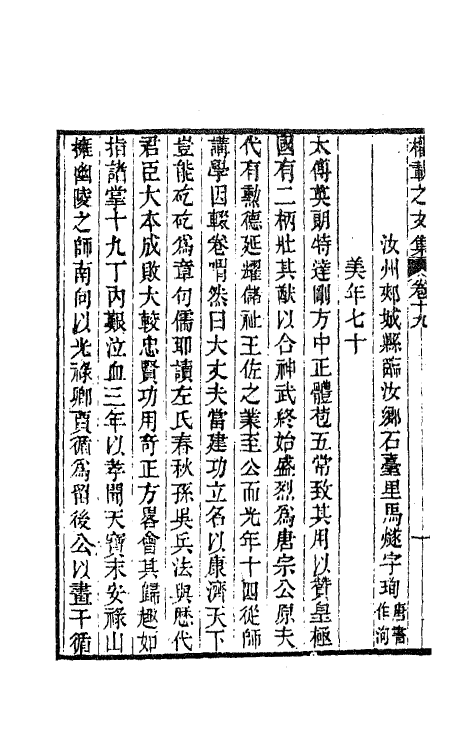 權載之文集 卷十九 一
汝州郟城縣臨汝鄉石臺里馬燧字珣唐書作洵
美年七十
太傅英朗特達剛方中正體苞五常致其用以贊皇極
國有二柄壯其猷以合神武終始盛烈為唐宗公原夫
代有勲德延耀儲祉王佐之業至公而光年十四從師
講學因輟卷喟然曰大丈夫當建功立名以康濟天下
豈能矻矻爲章句儒耶讀左氏春秋孫吳兵法與歷代
君臣大本成敗大較忠賢功用奇正方畧會其歸趣如
指諸掌十九丁內艱泣血三年以孝聞天寶末安祿山
擁幽陵之師南向以光祿卿賈循爲留後公以畫干循